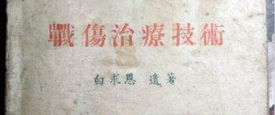 戰傷治療技術
白求恩 遺著